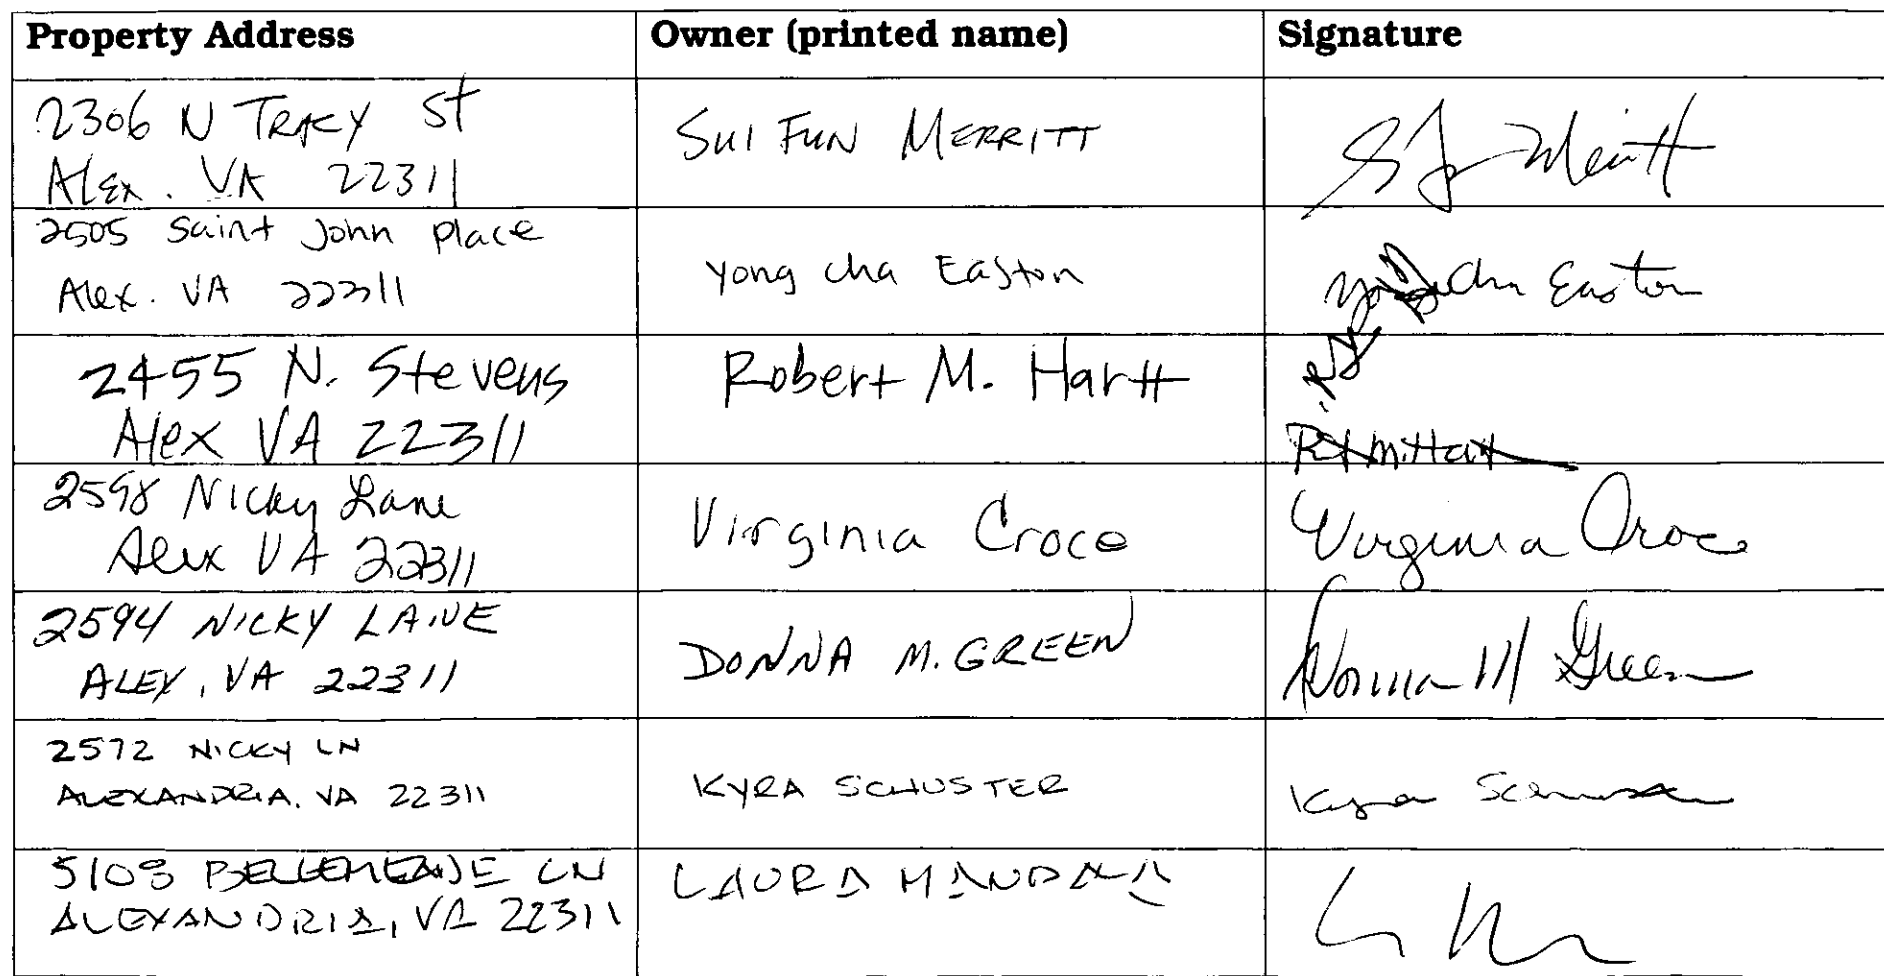 Property Address Owner (printed name) Signature
2306 N TRACY St
Alex. VA 22311
SUI FUN MERRITT
2505 Saint John Place
Alex. VA 22311
Yong cha Easton
Yong Cha Easton
2455 N. Stevens
Alex VA 22311
Robert M. Hartt
2598 Nicky Lane
Alex VA 22311
Virginia Croce
Virginia Croce
2594 NICKY LANE
ALEX, VA 22311
DONNA M. GREEN
Donna M Green
2572 NICKY LN
ALEXANDRIA, VA 22311
KYRA SCHUSTER
Kyra Schuster
5108 LN
ALEXANDRIA, VA 22311
LAURA